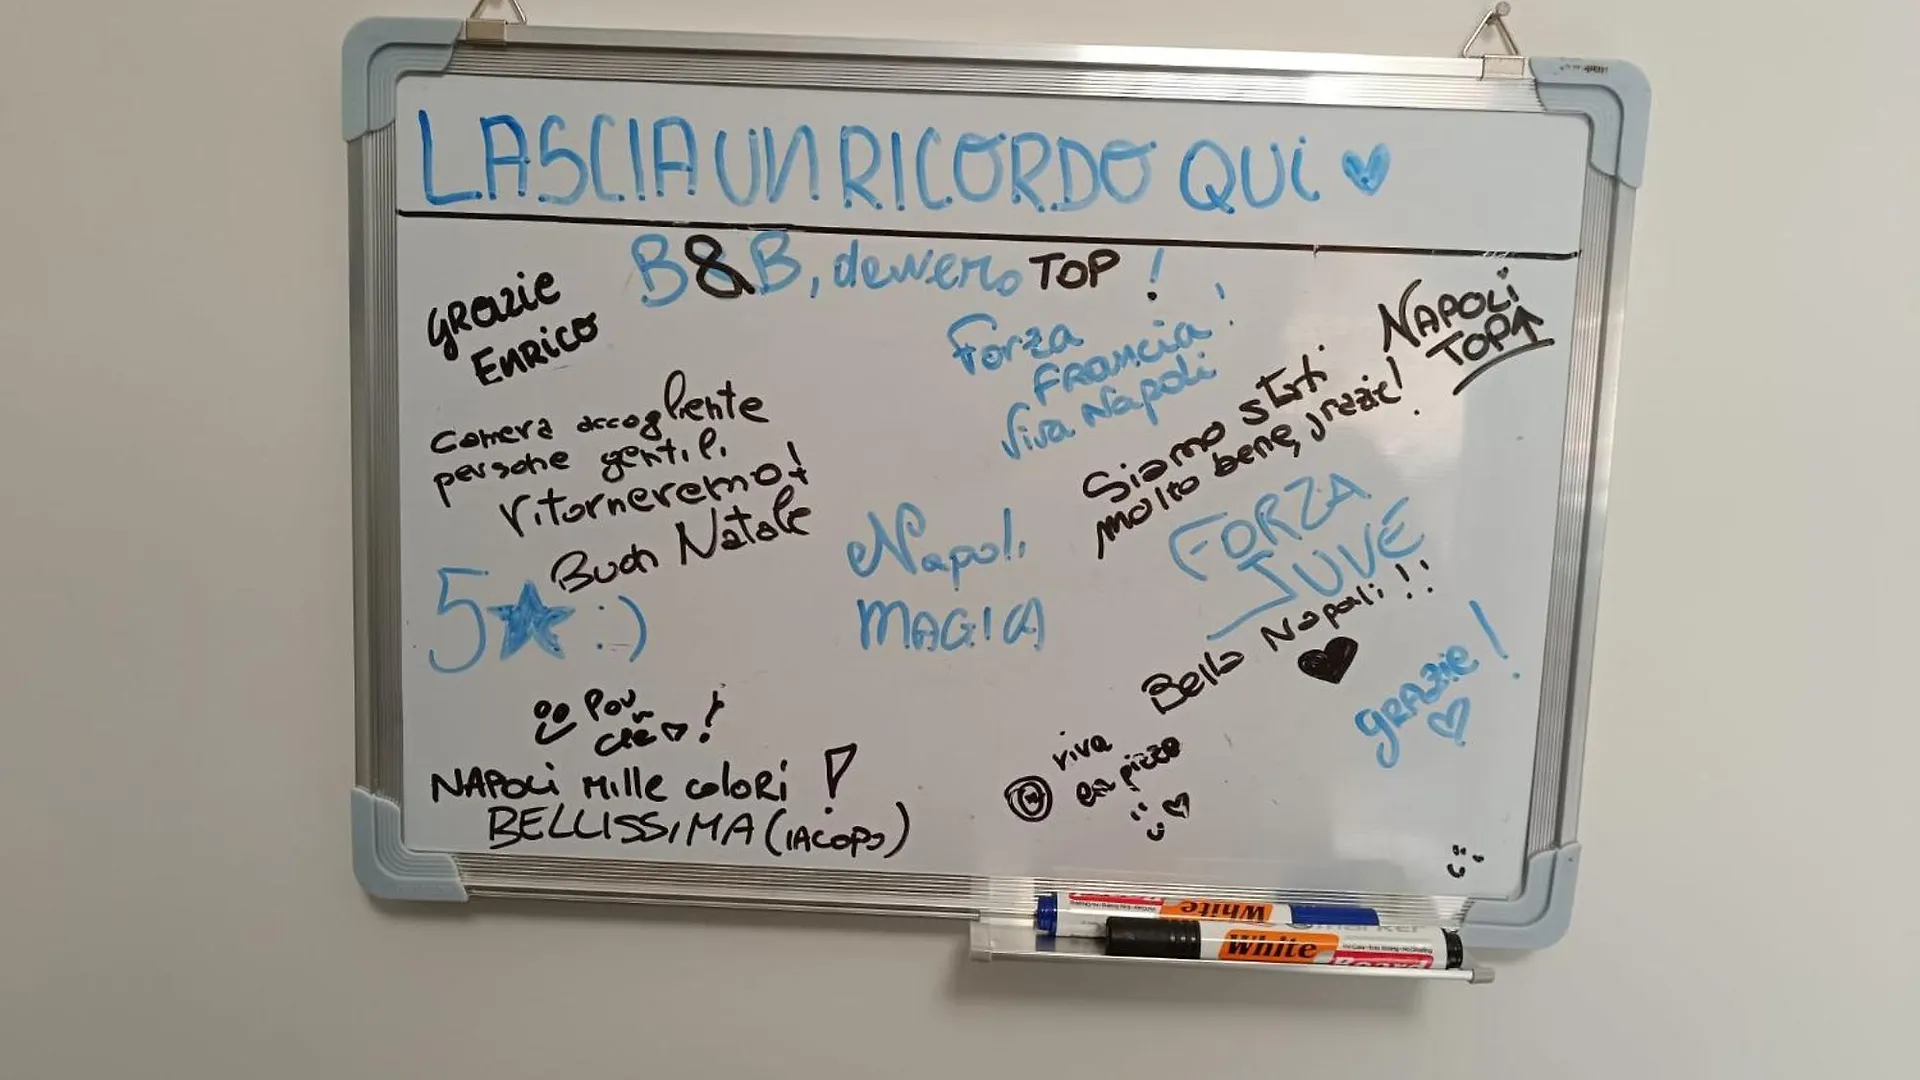 LASCIA UN RICORDO QUI
B&B, davvero TOP!
GRAZIE
ENRICO
Forza
FRANCIA!
Viva Napoli
NAPOLI
TOP
Siamo stati
molto bene, grazie!
Camera accogliente
persone gentili
ritorneremo!
Buon Natale
Napoli
MAGICA
FORZA
JUVE
5 :)
Bella Napoli!!
GRAZIE!
NAPOLI Mille colori!
BELLISSIMA (IACOPO)
viva
la pizza
White
White
Board